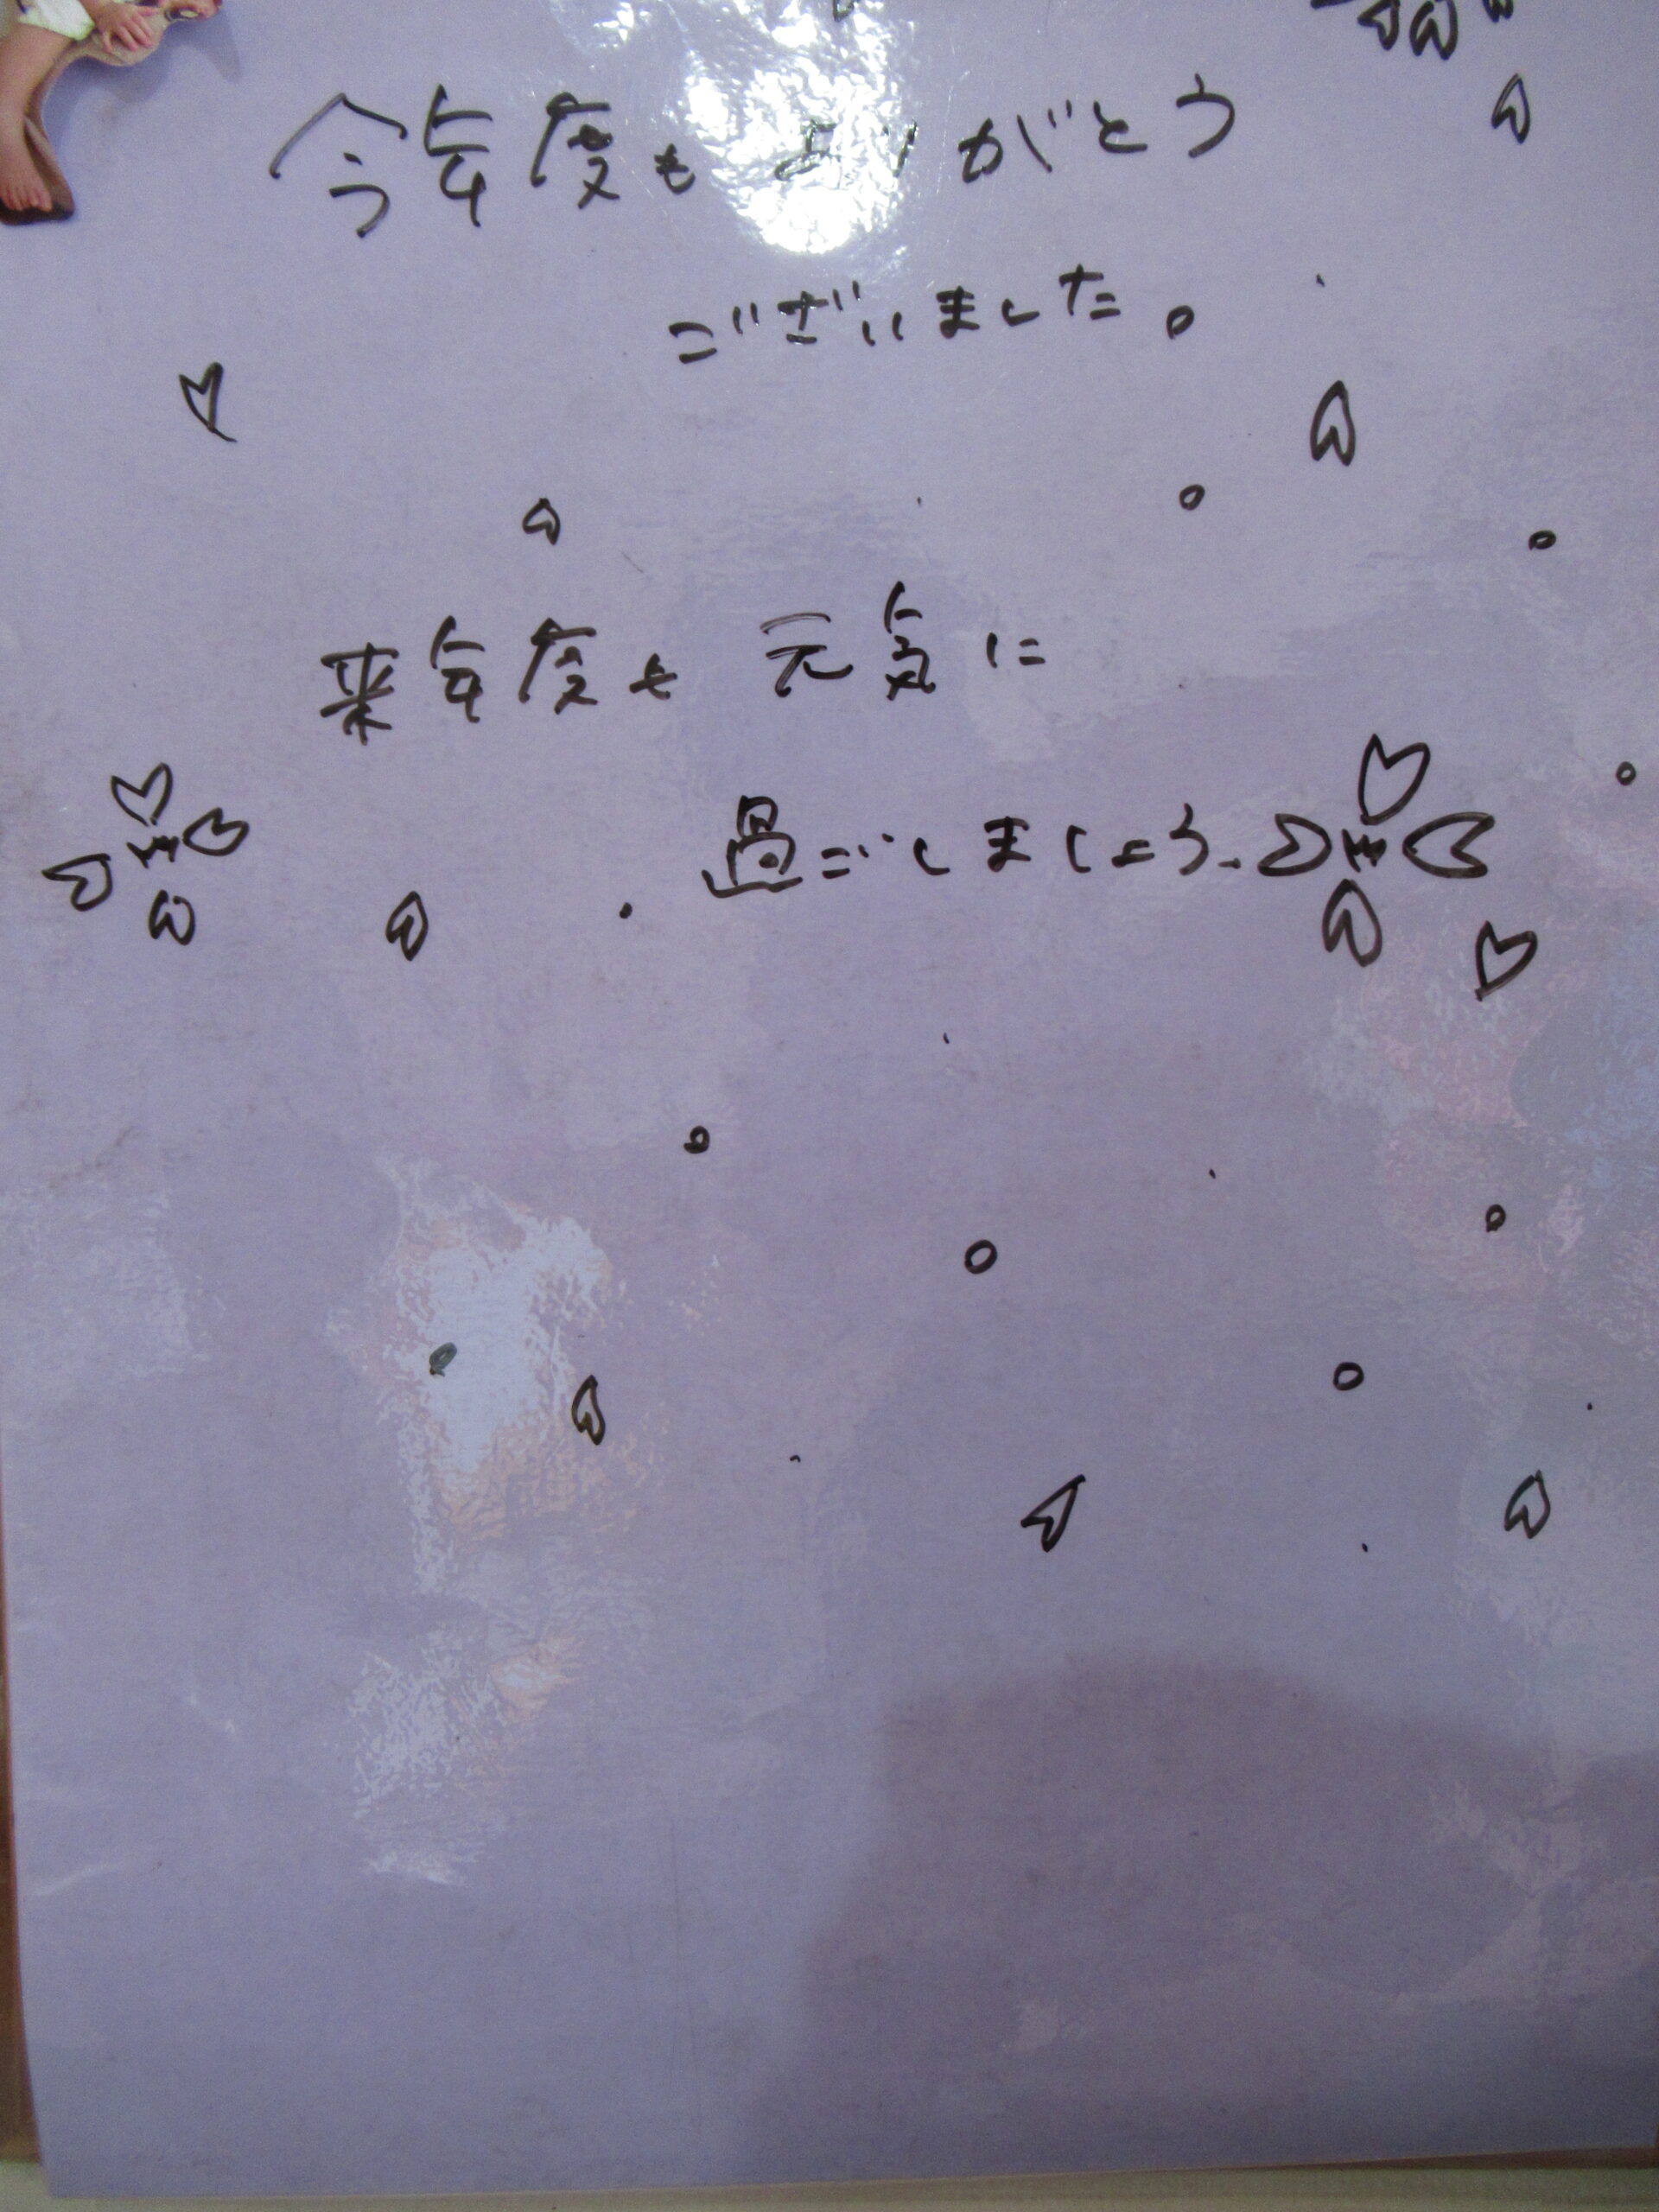 今年度も ありがとう
ございました。
来年度も 元気に
過ごしましょう。